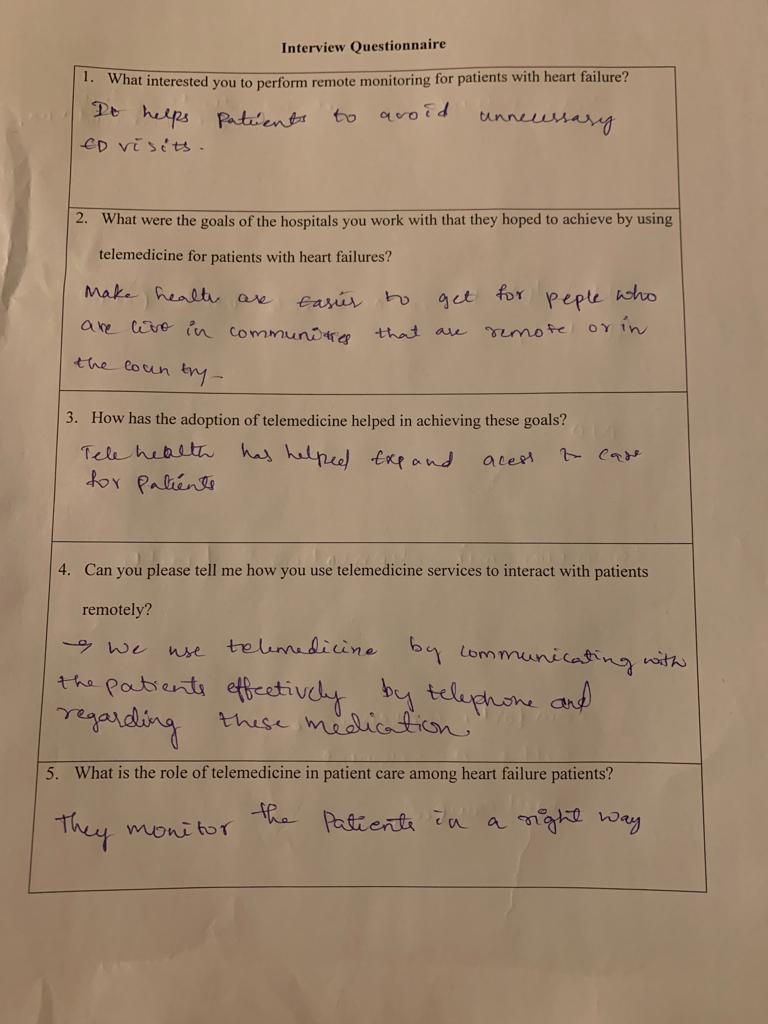 Interview Questionnaire
1. What interested you to perform remote monitoring for patients with heart failure?
It helps patients to avoid unnecessary
ED visits.
2. What were the goals of the hospitals you work with that they hoped to achieve by using
telemedicine for patients with heart failures?
Make health are easier to get for peple who
are live in communities that are remote or in
the country
3. How has the adoption of telemedicine helped in achieving these goals?
Tele health has helped expand acess to care
for patients
4. Can you please tell me how you use telemedicine services to interact with patients
remotely?
→ We use telemedicine by communicating with
the patients effectively by telephone and
regarding these medication.
5. What is the role of telemedicine in patient care among heart failure patients?
They monitor the patients in a right way